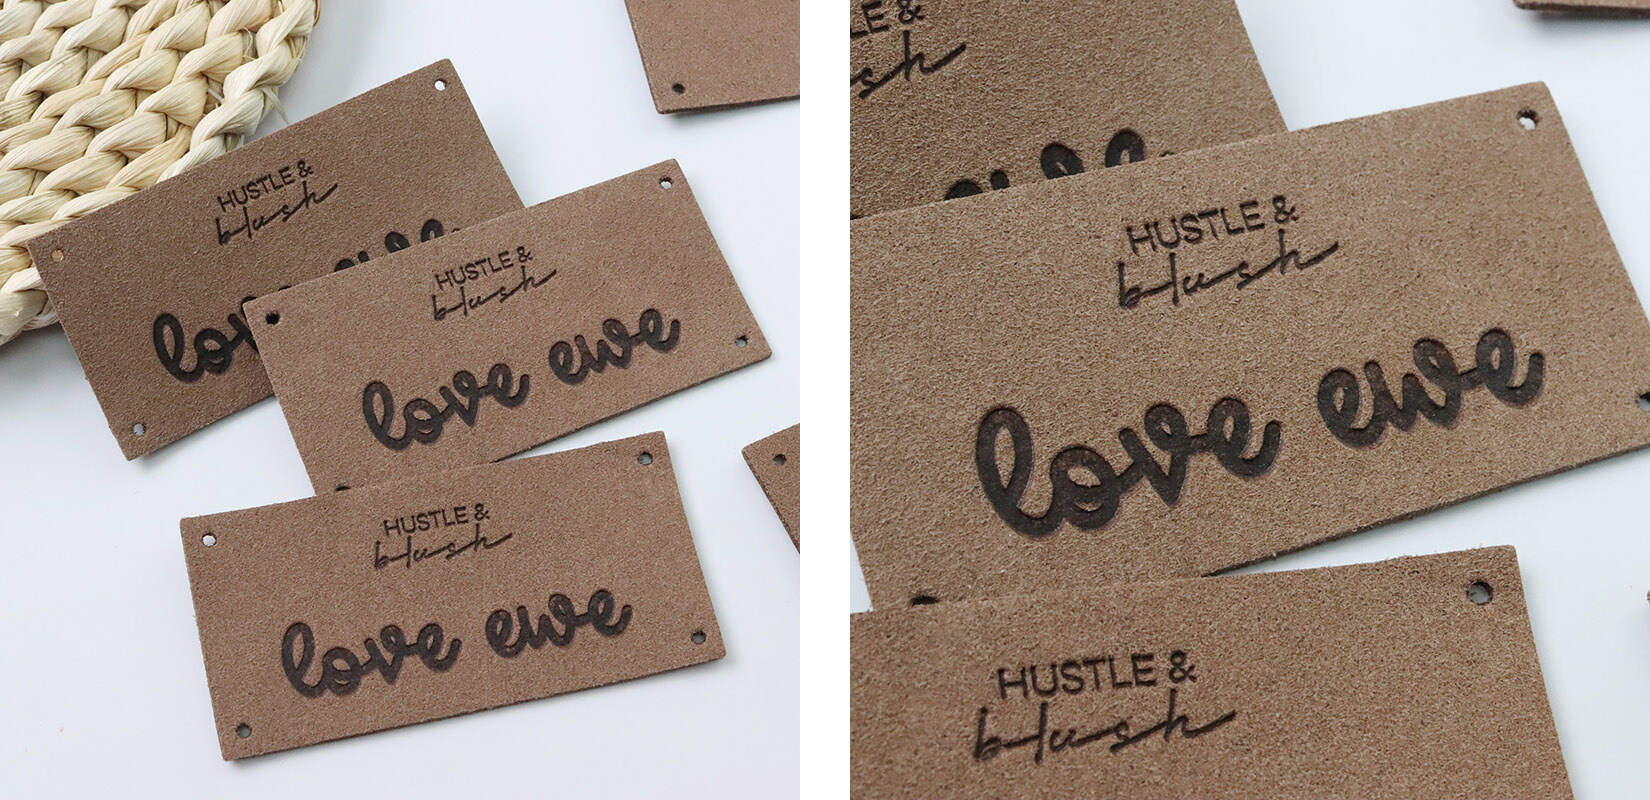 HUSTLE &
blush
love ewe
HUSTLE &
blush
love ewe
HUSTLE &
blush
love ewe
LE &
sh
HUSTLE &
blush
love ewe
HUSTLE &
blush